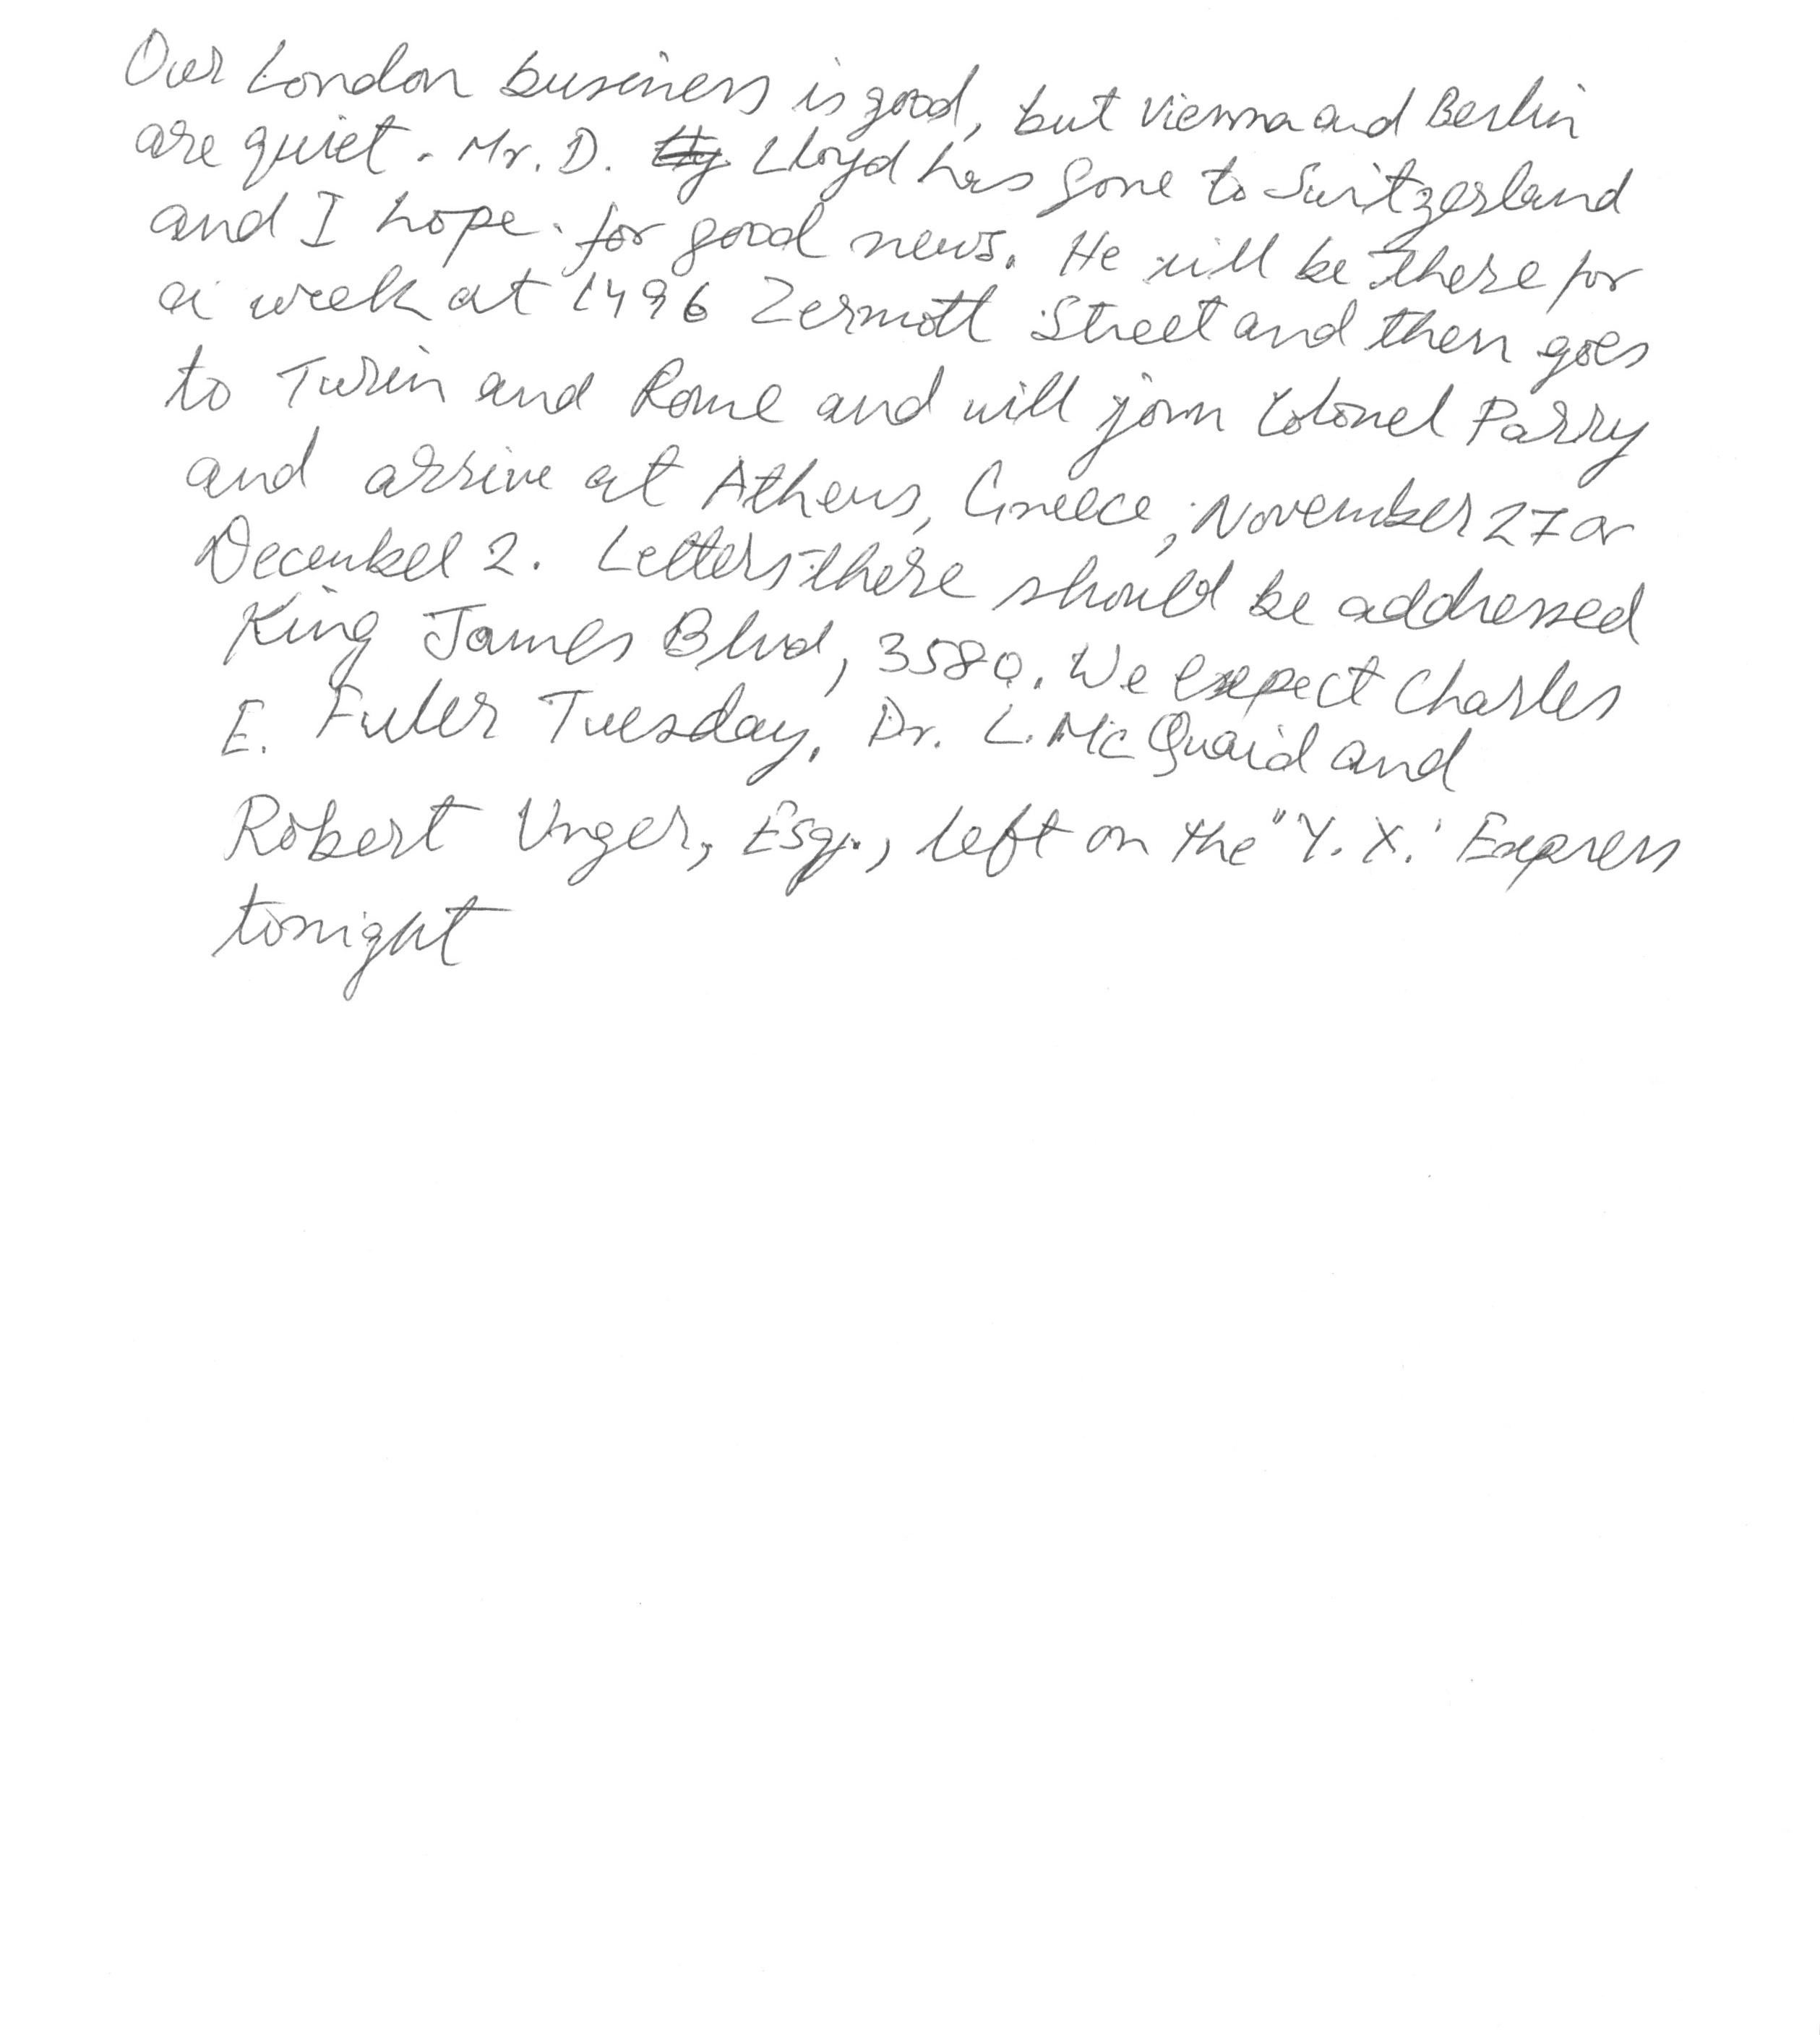 Our London business is good, but Vienna and Berlin
are quiet. Mr. D. Lloyd has gone to Switzerland
and I hope for good news. He will be there for
a week at 1496 Zermott Street and then goes
to Turin and Rome and will join Colonel Parry
and arrive at Athens, Greece, November 27 or
December 2. Letters there should be addressed
King James Blvd, 3580. We expect Charles
E. Fuller Tuesday. Dr. L. McQuaid and
Robert Unger, Esq., left on the "Y. X.' Express
tonight